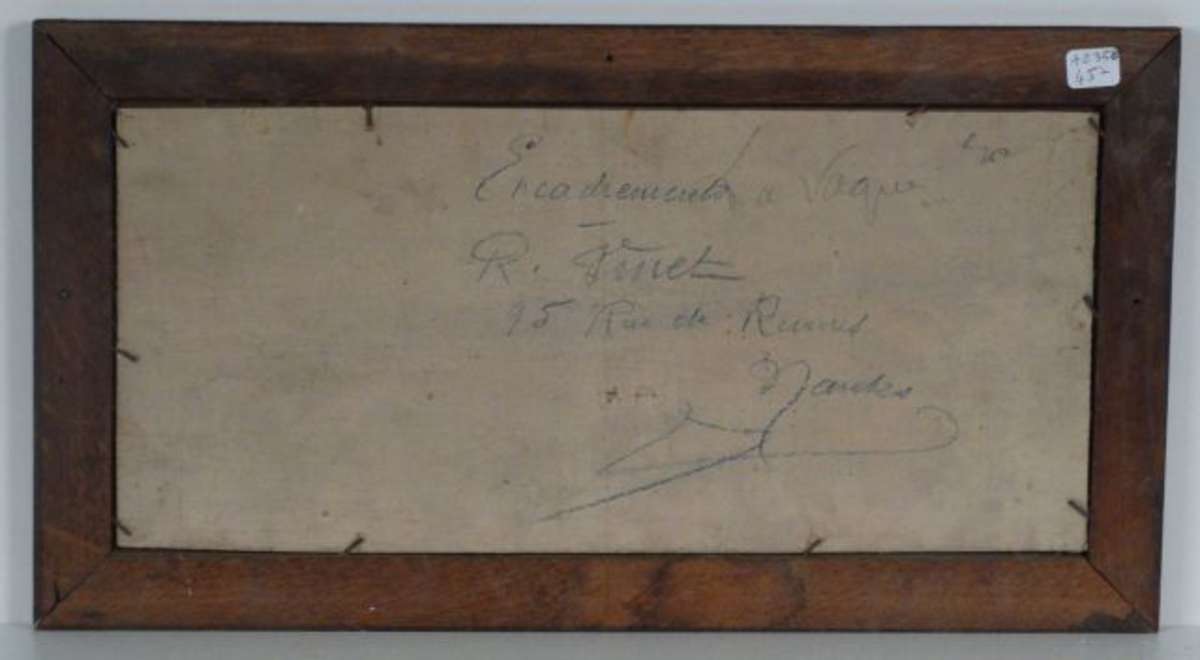 +2350
45-
Encadrements a
R. Vinet
95 Rue de Rennes
Nantes